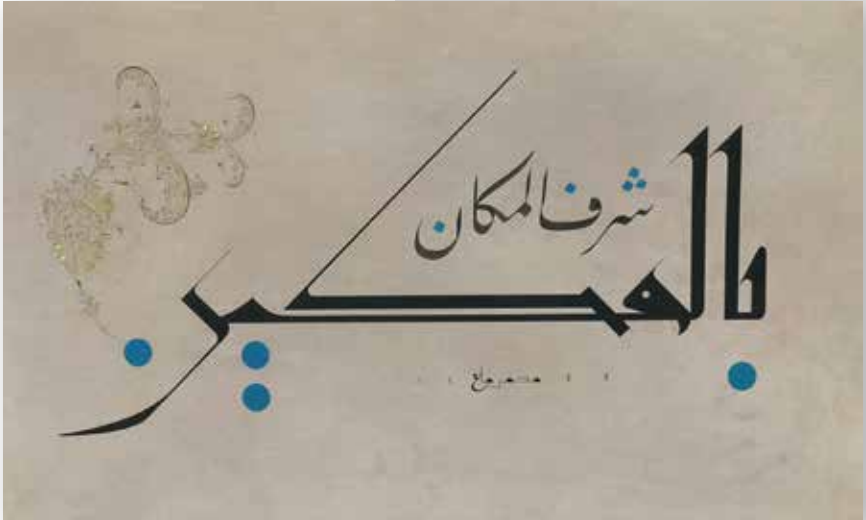 شرف المكان
بالمكين